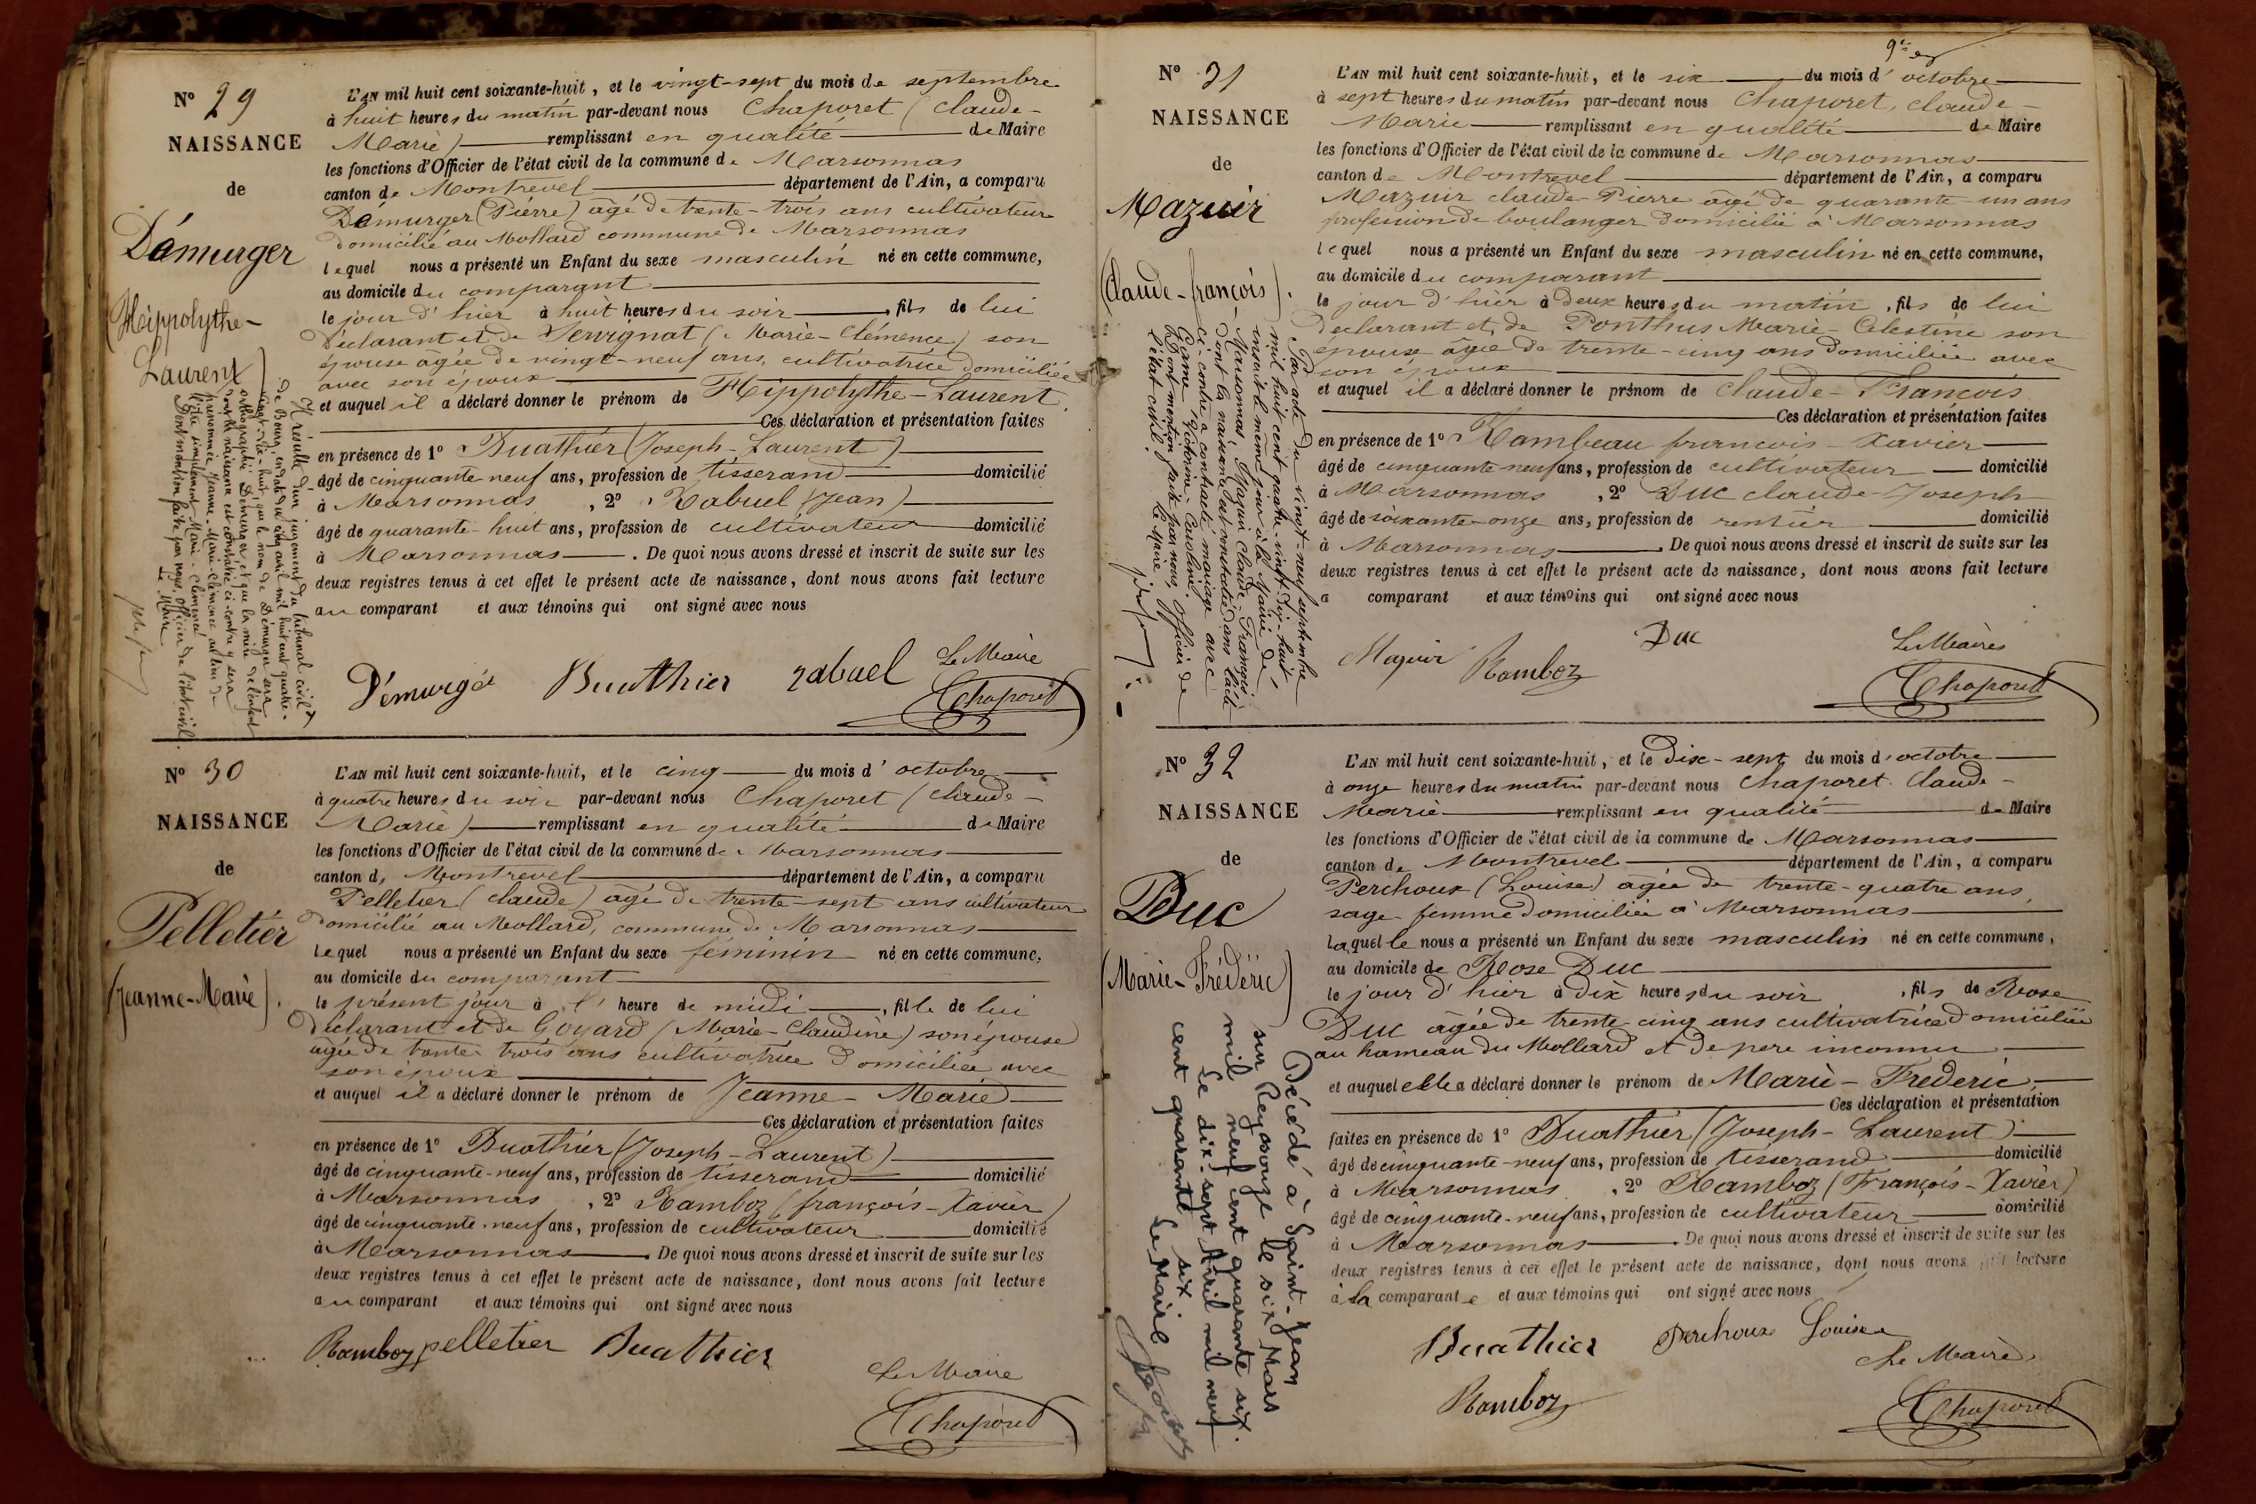 N° 29
NAISSANCE
de
Démurger
(Hippolythe-
Laurent)
L'AN mil huit cent soixante-huit, et le vingt-sept du mois de septembre
à huit heures du matin par-devant nous Chaporet (Claude-
Marie) remplissant en qualité de Maire
les fonctions d'Officier de l'état civil de la commune de Marsonnas
canton de Montrevel département de l'Ain, a comparu
Démurger (Pierre) âgé de trente-trois ans cultivateur
domicilié au Mollard commune de Marsonnas
lequel nous a présenté un Enfant du sexe masculin né en cette commune,
au domicile du comparant
le jour d'hier à huit heures du soir, fils de lui
déclarant et de Servignat (Marie-Clémence) son
épouse âgée de vingt-neuf ans, cultivatrice domiciliée
avec son époux
et auquel il a déclaré donner le prénom de Hippolythe-Laurent.
Ces déclaration et présentation faites
en présence de 1° Buathier (Joseph-Laurent)
âgé de cinquante neuf ans, profession de tisserand domicilié
à Marsonnas, 2° Rabuel (Jean)
âgé de quarante-huit ans, profession de cultivateur domicilié
à Marsonnas. De quoi nous avons dressé et inscrit de suite sur les
deux registres tenus à cet effet le présent acte de naissance, dont nous avons fait lecture
au comparant et aux témoins qui ont signé avec nous
Il résulte d'un jugement du tribunal civil
de Bourg, en date du cinq avril mil huit cent quatre-
vingt-dix-huit, que le nom de Démurger sera
orthographié Démurger et que la mère de l'enfant
dont la naissance est constatée ci-contre y sera
prénommée Jeanne-Marie-Clémence au lieu de
l'être simplement Marie-Clémence
Dont mention faite par nous, officier de l'état civil.
Le Maire
Démurgé Buathier rabuel Le Maire
Chaporet
N° 30
NAISSANCE
de
Pelletier
(Jeanne-Marie).
L'AN mil huit cent soixante-huit, et le cinq du mois d'octobre
à quatre heures du soir par-devant nous Chaporet (Claude-
Marie) remplissant en qualité de Maire
les fonctions d'Officier de l'état civil de la commune de Marsonnas
canton de Montrevel département de l'Ain, a comparu
Pelletier (Claude) âgé de trente-sept ans cultivateur
domicilié au Mollard, commune de Marsonnas
lequel nous a présenté un Enfant du sexe féminin né en cette commune,
au domicile du comparant
le présent jour à l' heure de midi, fille de lui
déclarant et de Goyard (Marie-Claudine) son épouse
âgée de trente trois ans cultivatrice domiciliée avec
son époux
et auquel il a déclaré donner le prénom de Jeanne-Marie
Ces déclaration et présentation faites
en présence de 1° Buathier (Joseph-Laurent)
âgé de cinquante-neuf ans, profession de tisserand domicilié
à Marsonnas, 2° Ramboz (françois-Xavier)
âgé de cinquante-neuf ans, profession de cultivateur domicilié
à Marsonnas. De quoi nous avons dressé et inscrit de suite sur les
deux registres tenus à cet effet le présent acte de naissance, dont nous avons fait lecture
au comparant et aux témoins qui ont signé avec nous
Ramboz pelletier Buathier
Le Maire
Chaporet
N° 31
NAISSANCE
de
Mazuir
(Claude-françois).
L'AN mil huit cent soixante-huit, et le six du mois d'octobre
à sept heures du matin par-devant nous Chaporet, Claude-
Marie remplissant en qualité de Maire
les fonctions d'Officier de l'état civil de la commune de Marsonnas
canton de Montrevel département de l'Ain, a comparu
Mazuir claude-Pierre âgé de quarante-un ans
profession de boulanger domicilié à Marsonnas
lequel nous a présenté un Enfant du sexe masculin né en cette commune,
au domicile du comparant
le jour d'hier à deux heures du matin, fils de lui
déclarant et de Ponthus Marie-Célestine son
épouse âgée de trente-cinq ans domiciliée avec
son époux
et auquel il a déclaré donner le prénom de Claude-François
Ces déclaration et présentation faites
en présence de 1° Rambeau francois-Xavier
âgé de cinquante-neuf ans, profession de cultivateur domicilié
à Marsonnas, 2° Duc claude-Joseph
âgé de soixante-onze ans, profession de rentier domicilié
à Marsonnas. De quoi nous avons dressé et inscrit de suite sur les
deux registres tenus à cet effet le présent acte de naissance, dont nous avons fait lecture
a comparant et aux témoins qui ont signé avec nous
Par acte du vingt-neuf septembre
mil huit cent quatre-vingt-dix-huit,
inscrit le même jour à la Mairie de
Marsonnas, Mazuir claude-François
dont la naissance est constatée dans l'acte
ci-contre a contracté mariage avec
Victorine-Caroline.
Dont mention faite par nous, officier de
l'état civil. Le Maire
Mazuir Ramboz Duc Le Maire
Chaporet
N° 32
NAISSANCE
de
Duc
(Marie-Frédéric)
L'AN mil huit cent soixante-huit, et le dix-sept du mois d'octobre
à onze heures du matin par-devant nous Chaporet Claude-
Marie remplissant en qualité de Maire
les fonctions d'Officier de l'état civil de la commune de Marsonnas
canton de Montrevel département de l'Ain, a comparu
Perchoux (Louise) âgée de trente-quatre ans,
sage-femme domiciliée à Marsonnas
laquelle nous a présenté un Enfant du sexe masculin né en cette commune,
au domicile de Rose Duc
le jour d'hier à dix heures du soir, fils de Rose
Duc âgée de trente-cinq ans cultivatrice domiciliée
au hameau du Mollard et de pere inconnu
et auquel elle a déclaré donner le prénom de Marie-Frédéric,
Ces déclaration et présentation
faites en présence de 1° Buathier (Joseph-Laurent)
âgé de cinquante-neuf ans, profession de tisserand domicilié
à Marsonnas, 2° Ramboz (François-Xavier)
âgé de cinquante-neuf ans, profession de cultivateur domicilié
à Marsonnas. De quoi nous avons dressé et inscrit de suite sur les
deux registres tenus à cet effet le présent acte de naissance, dont nous avons fait lecture
à la comparante et aux témoins qui ont signé avec nous
Décédé à Saint-Jean
sur Reyssouze le six Mars
mil neuf cent quarante six.
Le dix-sept Avril mil neuf
cent quarante six.
Le Maire
Buathier Perchoux Louise
Le Maire
Ramboz Chaporet